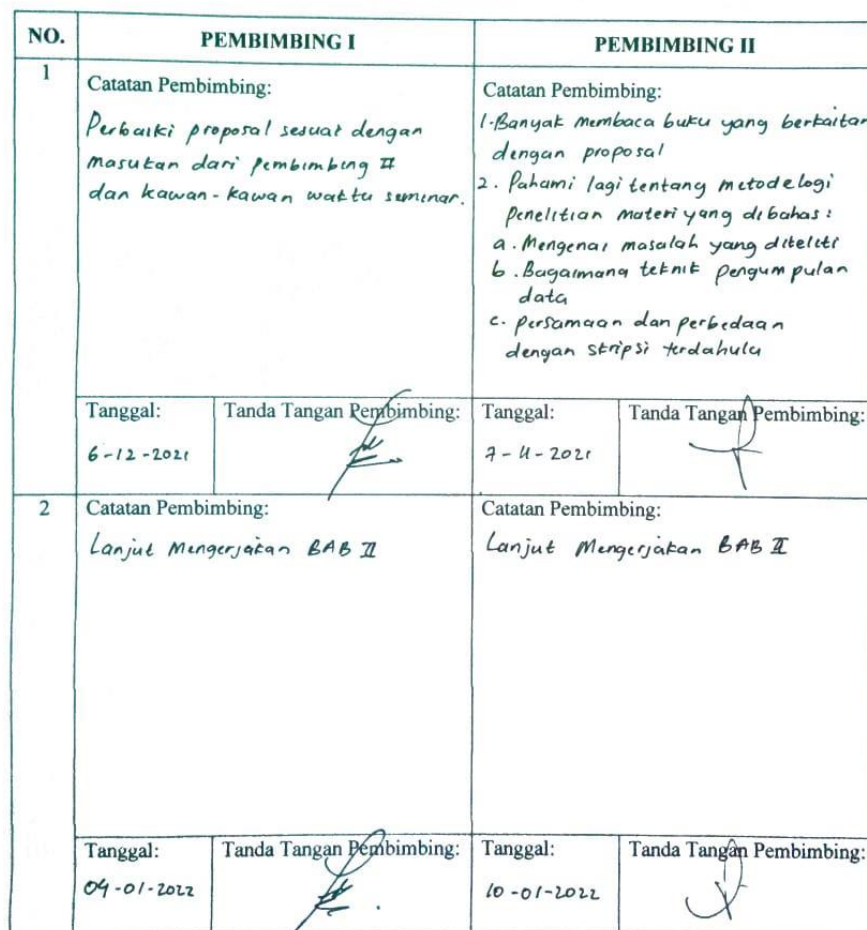 NO.
PEMBIMBING I
PEMBIMBING II
1
Catatan Pembimbing:
Perbaiki proposal sesuai dengan
masukan dari Pembimbing II
dan kawan-kawan waktu seminar.
Catatan Pembimbing:
1. Banyak membaca buku yang berkaitan
dengan proposal
2. Pahami lagi tentang metodelogi
Penelitian materi yang dibahas:
a. Mengenai masalah yang diteliti
b. Bagaimana teknik pengumpulan
data
c. persamaan dan perbedaan
dengan skripsi terdahulu
Tanggal:
6-12-2021
Tanda Tangan Pembimbing:
Tanggal:
Tanda Tangan Pembimbing:
2
Catatan Pembimbing:
Lanjut Mengerjakan BAB II
Catatan Pembimbing:
Lanjut Mengerjakan BAB II
Tanggal:
04-01-2022
Tanda Tangan Pembimbing:
Tanggal:
10-01-2022
Tanda Tangan Pembimbing: